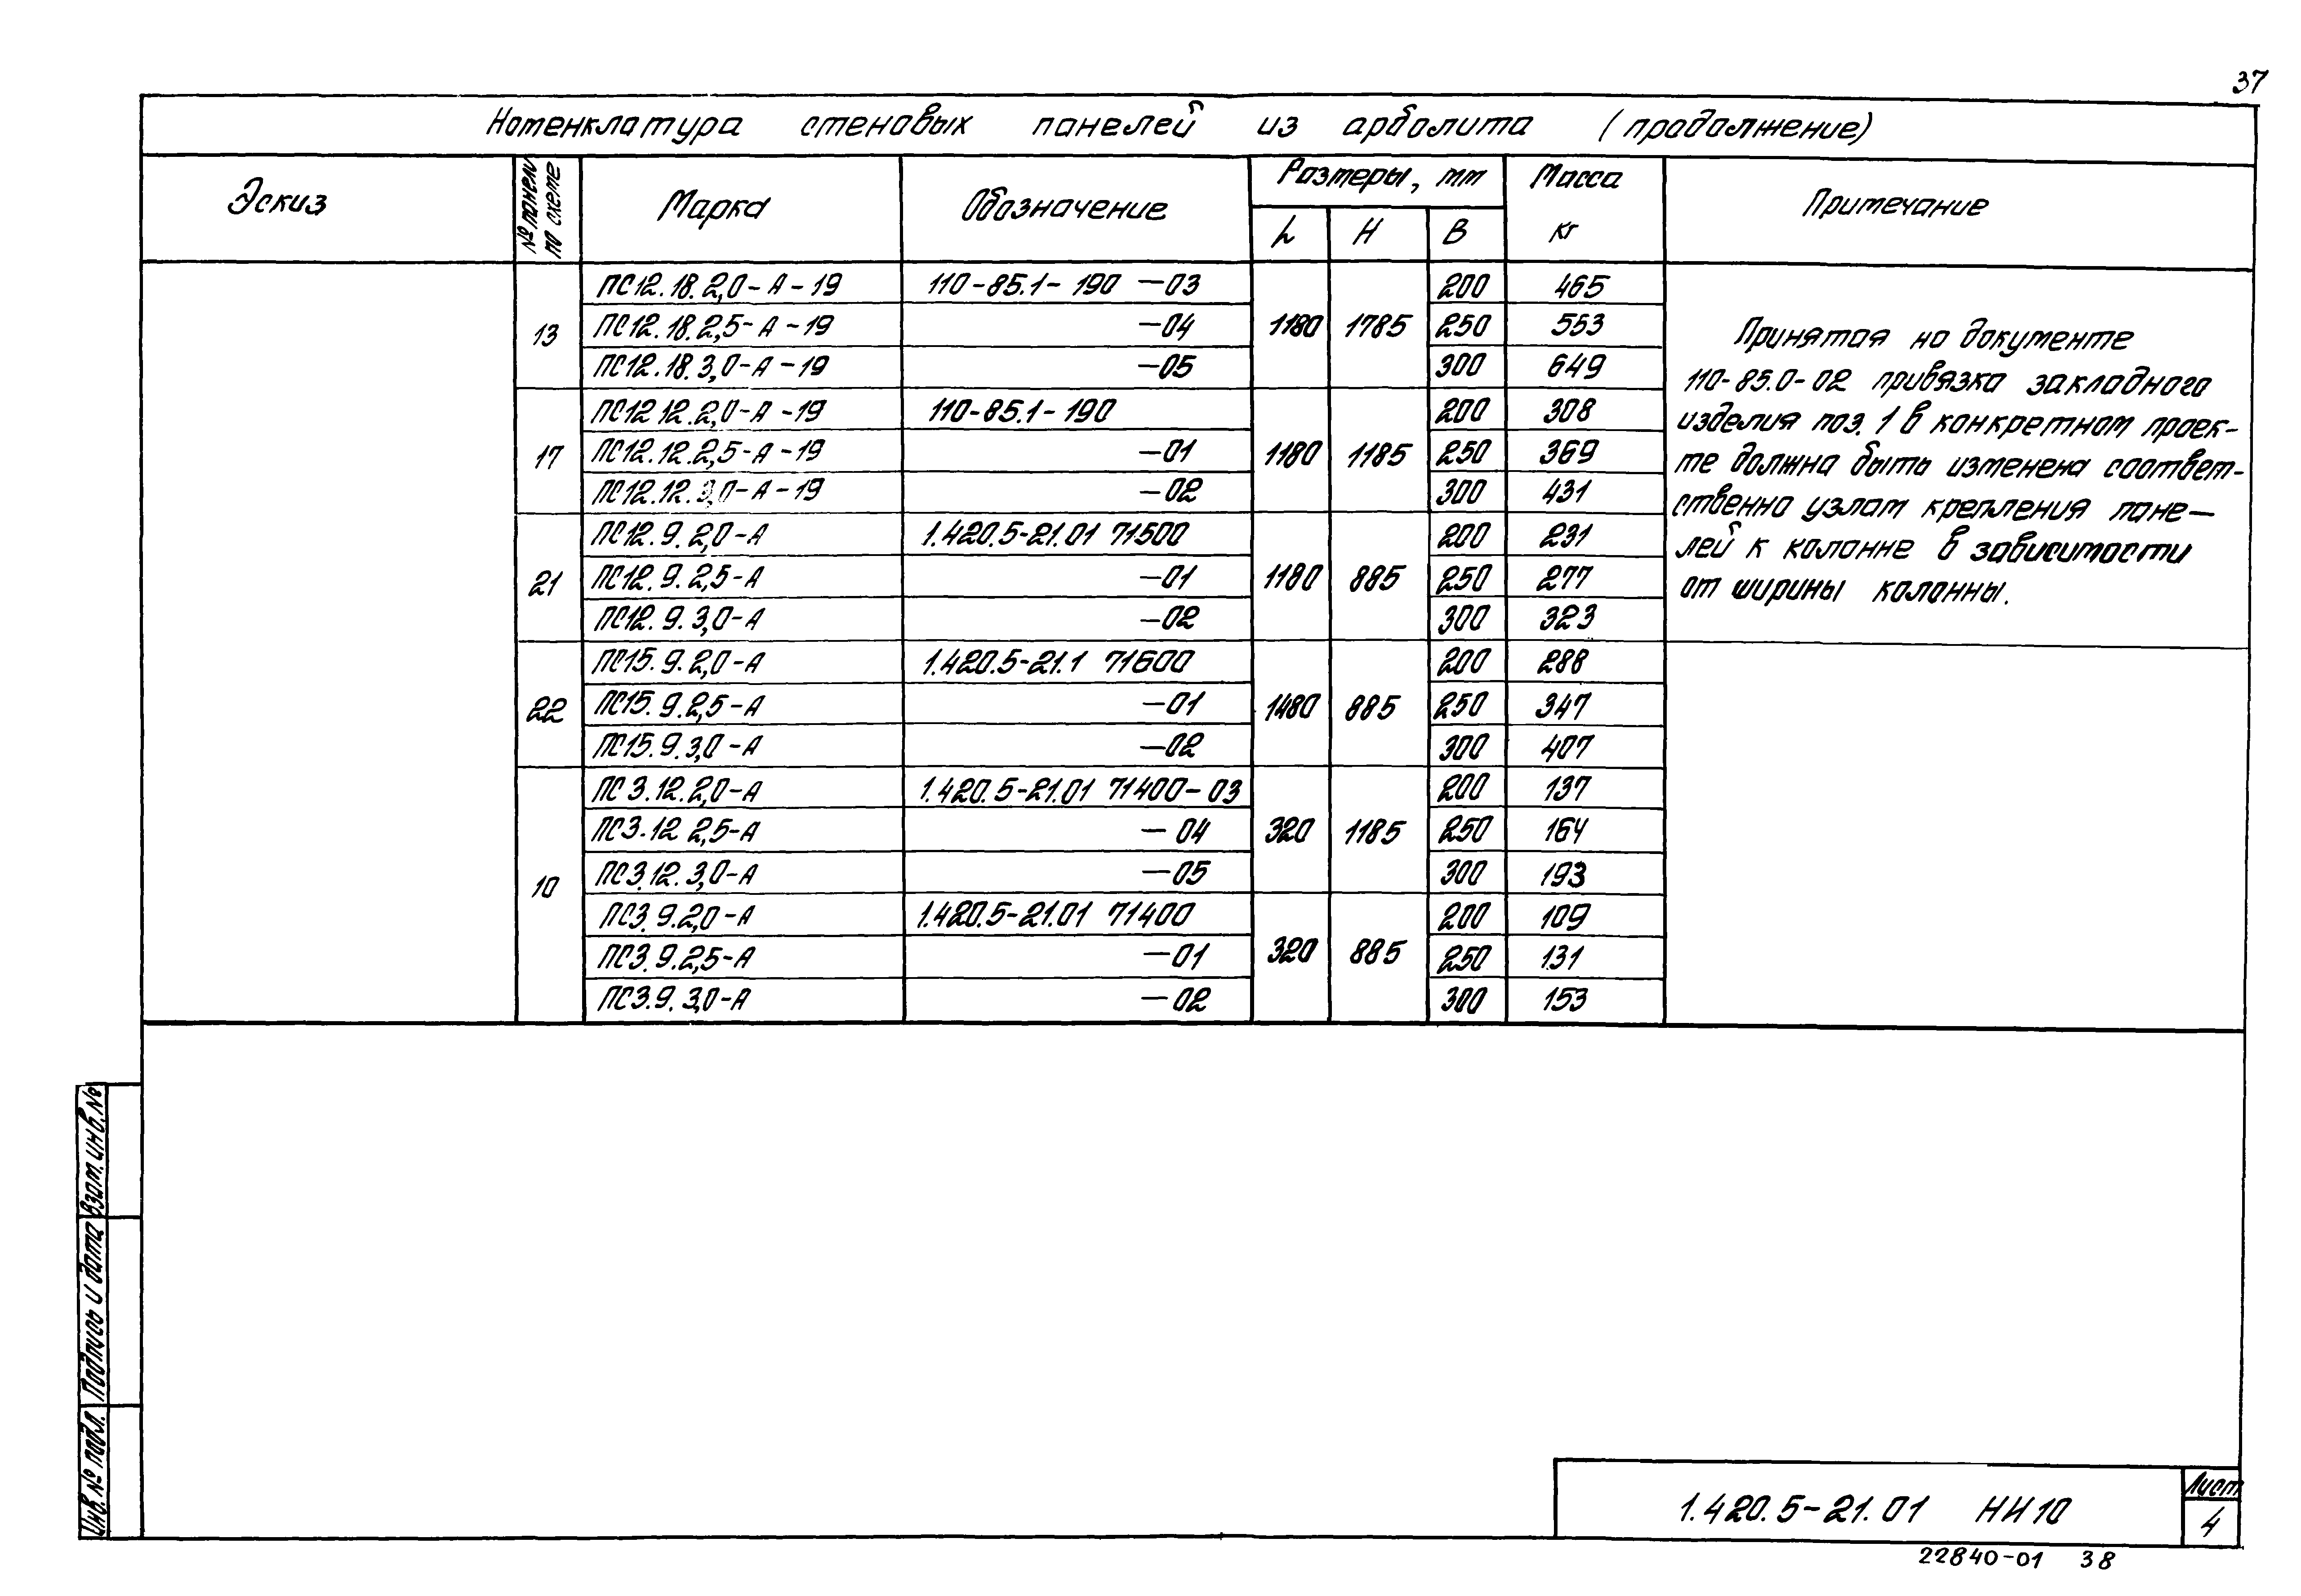 37
Номенклатура стеновых панелей из арболита (продолжение)
Эскиз № панели по схеме Марка Обозначение Размеры, мм Масса кг Примечание
L H B
13 1180 1785
ПС12.18.2,0-А-19 110-85.1-190 -03 200 465
ПС12.18.2,5-А-19 -04 250 553
ПС12.18.3,0-А-19 -05 300 649
17 1180 1185
ПС12.12.2,0-А-19 110-85.1-190 200 308
ПС12.12.2,5-А-19 -01 250 369
ПС12.12.3,0-А-19 -02 300 431
21 1180 885
ПС12.9.2,0-А 1.420.5-21.01 71500 200 231
ПС12.9.2,5-А -01 250 277
ПС12.9.3,0-А -02 300 323
22 1480 885
ПС15.9.2,0-А 1.420.5-21.1 71600 200 288
ПС15.9.2,5-А -01 250 347
ПС15.9.3,0-А -02 300 407
10 320 1185
ПС3.12.2,0-А 1.420.5-21.01 71400-03 200 137
ПС3.12 2,5-А -04 250 164
ПС3.12.3,0-А -05 300 193
320 885
ПС3.9.2,0-А 1.420.5-21.01 71400 200 109
ПС3.9.2,5-А -01 250 131
ПС3.9.3,0-А -02 300 153
Принятая на документе
110-85.0-02 привязка закладного
изделия поз. 1 в конкретном проек-
те должна быть изменена соответ-
ственно узлам крепления пане-
лей к колонне в зависимости
от ширины колонны.
Взам. инв. №
Подпись и дата
Инв. № подл.
1.420.5-21.01 НИ10
Лист
4
22840-01 38